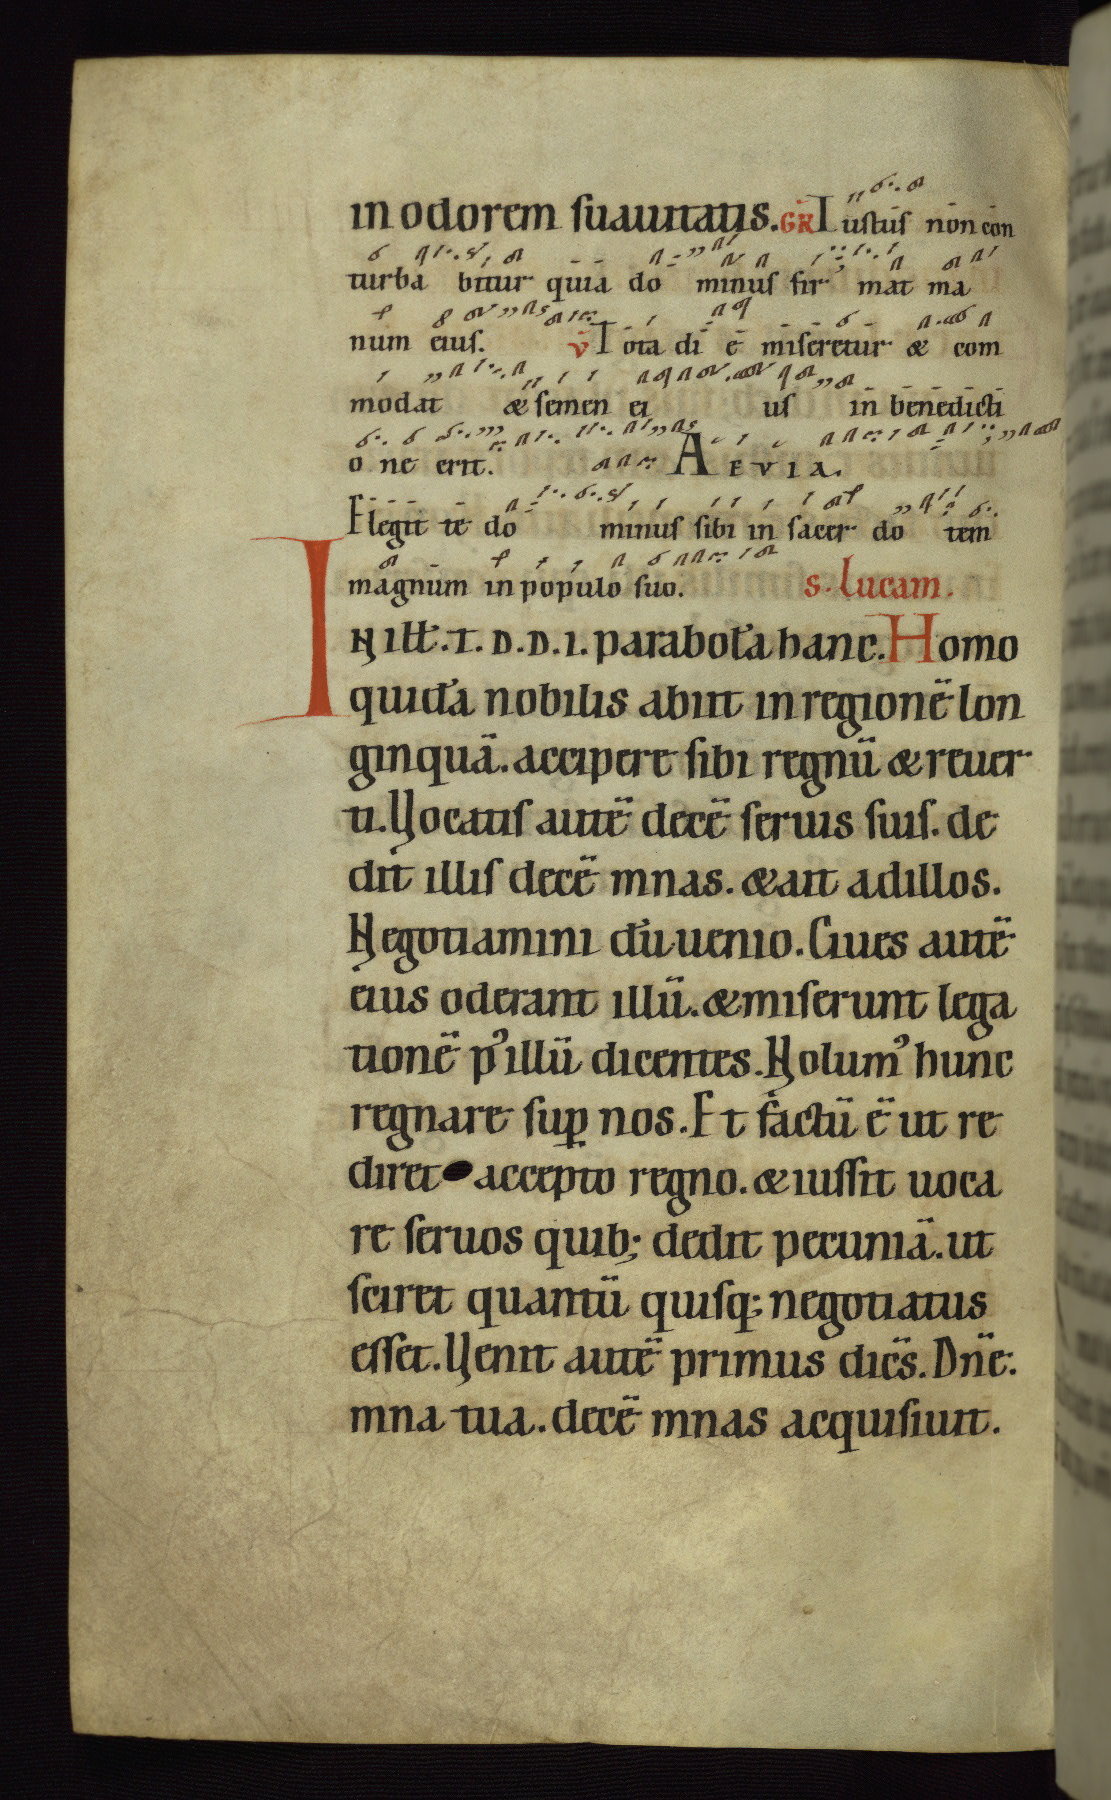 in odorem suauitatis. GR Iustus non con
turba bitur quia do minus fir mat ma
num eius. V Tota di ē miseretur & com
modat & semen ei us in benedicti
o ne erit. AEVIA.
Elegit te do minus sibi in sacer do tem
magnum in populo suo. S. Lucam.
IN ILL. T. D. D. I. parabolā hanc. Homo
quidā nobilis abiit in regionē lon
ginquā. accipere sibi regnū & reuer
ti. Vocatis autē decē seruis suis. de
dit illis decē mnas. & ait ad illos.
Negotiamini dū uenio. Ciues autē
eius oderant illū. & miserunt lega
tionē p' illū dicentes. Nolum' hunc
regnare sup nos. Et factū ē ut re
diret accepto regno. & iussit uoca
re seruos quib; dedit pecuniā. ut
sciret quantū quisq; negotiatus
esset. Venit autē primus dicēs. Dnē.
mna tua. decē mnas acquisiuit.